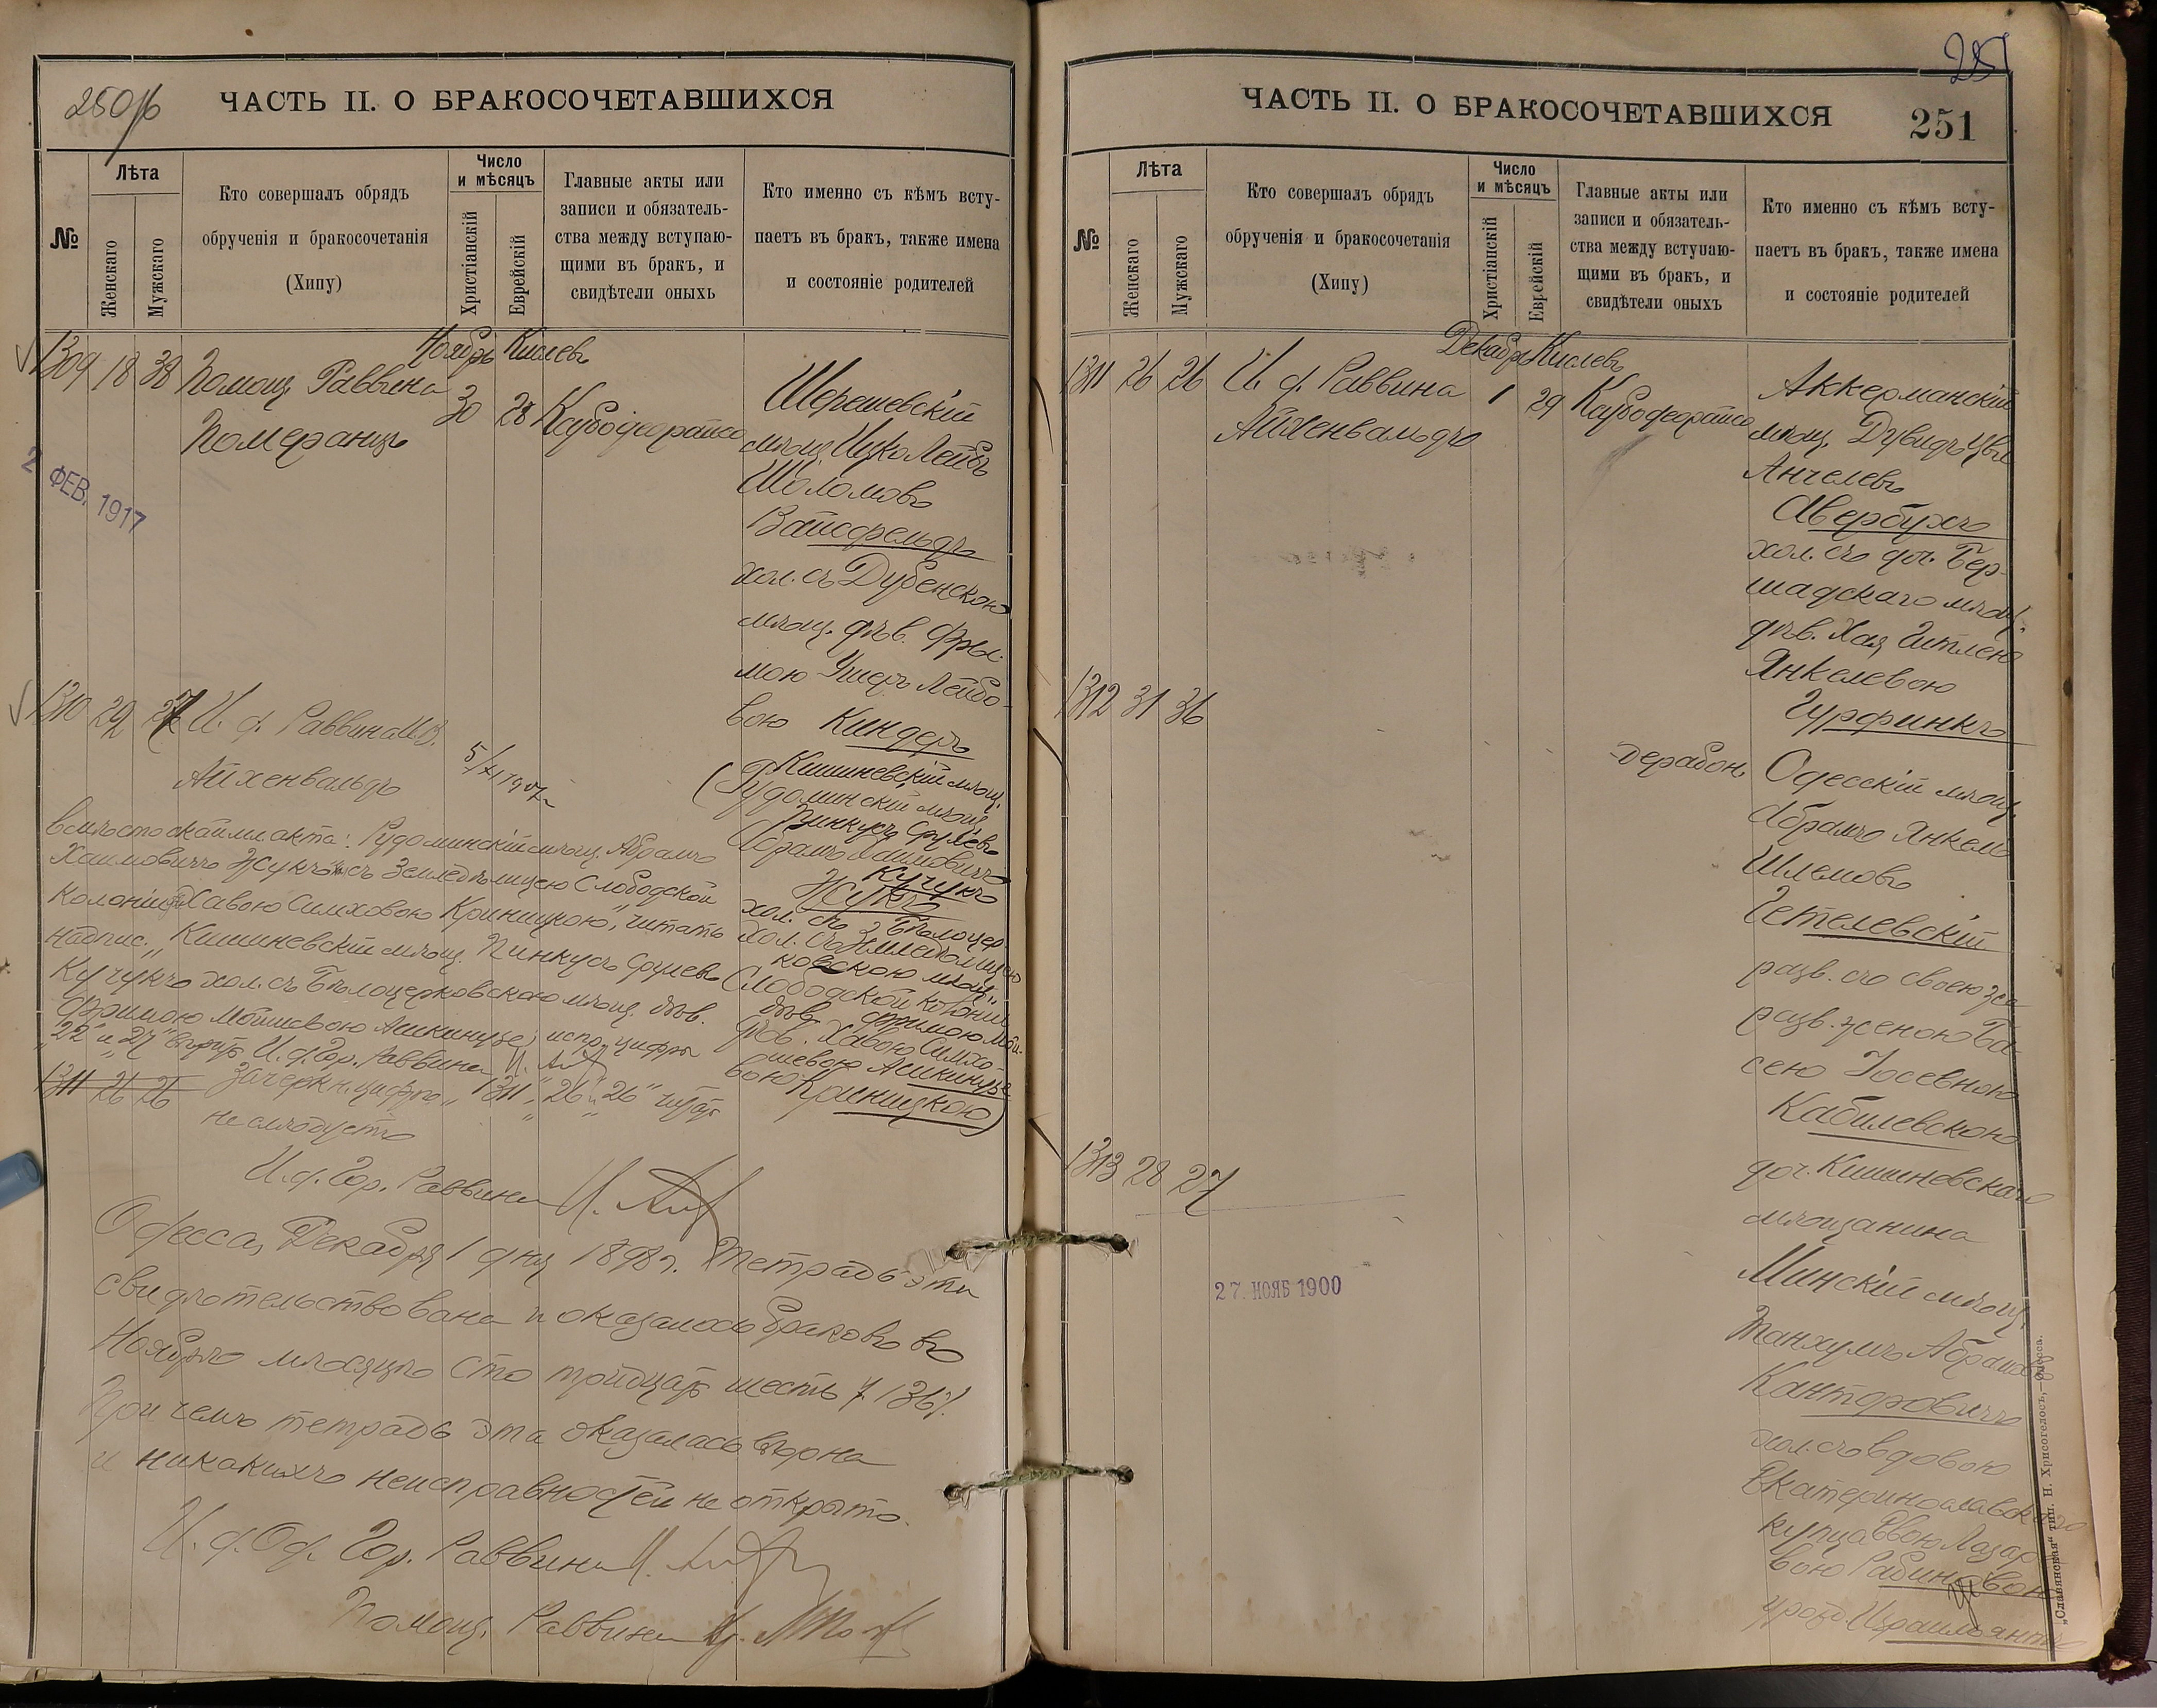 250 об
ЧАСТЬ II. О БРАКОСОЧЕТАВШИХСЯ
№
Лѣта
Женскаго
Мужскаго
Кто совершалъ обрядъ
обрученія и бракосочетанія
(Хипу)
Число
и мѣсяцъ
Христіанскій
Еврейскій
Главные акты или
записи и обязатель-
ства между вступаю-
щими въ бракъ, и
свидѣтели оныхъ
Кто именно съ кѣмъ всту-
паетъ въ бракъ, также имена
и состояніе родителей
Ноябрь Кислевъ
1309 18 38 Помощ. Раввина
Померанцъ
30 28
2 ФЕВ. 1917
Шерешевскій
мѣщ. Ицко Лейбъ
Шоломовъ
Вайсфельдъ
хол. съ Дубенскою
мѣщ. дѣв. Фры-
мою Ушеръ Лейбо-
вою Киндеръ
1310 29 27 И. д. Раввина
Айхенвальдъ
Кишиневскій мѣщ.
(Рудоминскій мѣщ.
Пинкусъ Срулевъ
Абрамъ Хаимовичъ
Кучукъ
Жукъ
хол. съ Бѣлоцер-
хол. съ Земледѣлицею
ковскою мѣщ.
Слободской колоніи
дѣв. Фримою Мой-
дѣв. Хавою Симхо-
шевою Ашкинузе
вою Криницкою)
вмѣсто акта: Рудоминскій мѣщ. Абрамъ
Хаимовичъ Жукъ съ Земледѣлицею Слободской
колоніи Хавою Симховою Криницкою", читать
надпис. „Кишиневскій мѣщ. Пинкусъ Срулевъ
Кучукъ хол. съ Бѣлоцерковскою мѣщ. дѣв.
Фримою Мойшевою Ашкинузе; испр. цифры
И. д. Гор. Раввина
1311 26 26 Зачеркн. цифры „1311" „26" „26" читать
не слѣдуетъ
И. д. Гор. Раввина
Одесса, Декабря 1 дня 1898 г. Тетрадь эта
свидѣтельствована и оказалось браковъ въ
Ноябрѣ мѣсяцѣ сто тридцать шесть /136/.
При чемъ тетрадь эта оказалась вѣрна
и никакихъ неисправностей не открыто.
И. д. Од. Гор. Раввина
Помощ. Раввина
251
ЧАСТЬ II. О БРАКОСОЧЕТАВШИХСЯ
251
№
Лѣта
Женскаго
Мужскаго
Кто совершалъ обрядъ
обрученія и бракосочетанія
(Хипу)
Число
и мѣсяцъ
Христіанскій
Еврейскій
Главные акты или
записи и обязатель-
ства между вступаю-
щими въ бракъ, и
свидѣтели оныхъ
Кто именно съ кѣмъ всту-
паетъ въ бракъ, также имена
и состояніе родителей
Декабрь Кислевъ
1311 26 26 И. д. Раввина
Айхенвальдъ
1 29
Аккерманскій
мѣщ. Дувидъ Цви
Анчелевъ
Авербухъ
хол. съ доч. Бер-
шадскаго мѣщ.
дѣв. Хая Гитлею
Янкелевою
Гурфинкъ
1312 31 36
дерабон.
Одесскій мѣщ.
Абрамъ Янкель
Шлемовъ
Гетелевскій
разв. съ своею же
разв. женою Ба-
сею Іосевною
Кабилевскою
доч. Кишиневскаго
мѣщанина
1313 28 27
27. НОЯБ 1900
Минскій мѣщ.
Танхумъ Абрамовъ
Канторовичъ
хол. съ вдовою
Екатеринославскаго
купца Лазар-
вою Рабиновою
урожд.
„Славянская" тип. Н. Хрисогелосъ,—Одесса.